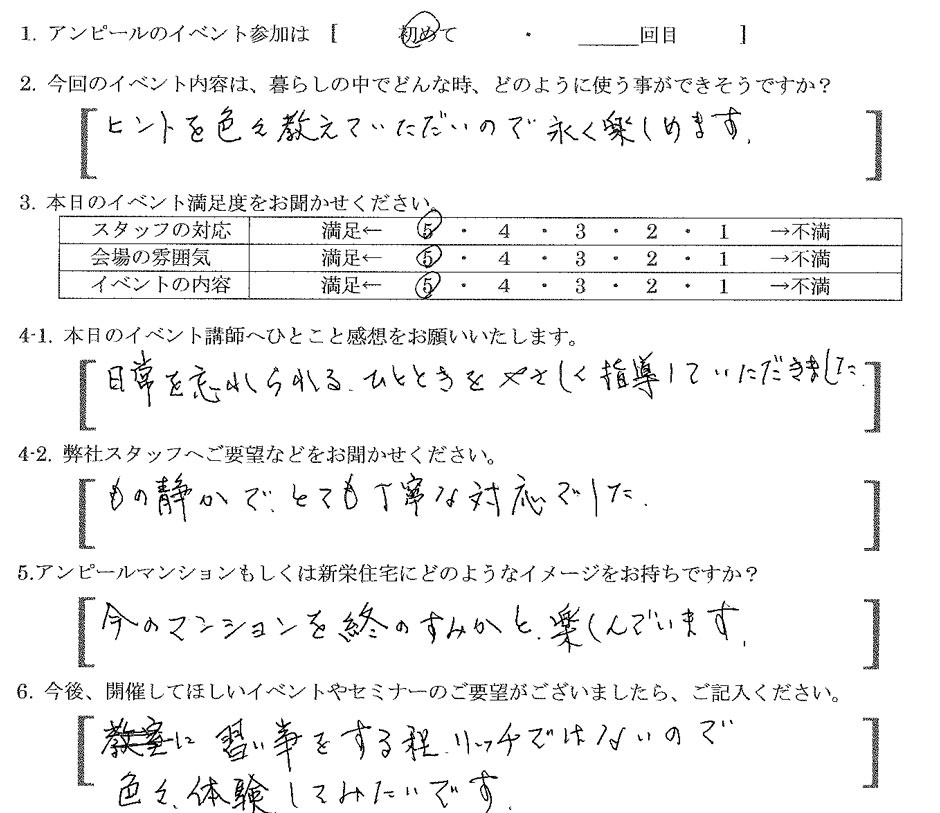 1. アンピールのイベント参加は [ 初めて ・ ＿＿＿回目 ]
2. 今回のイベント内容は、暮らしの中でどんな時、どのように使う事ができそうですか？
ヒントを色々教えていただいので永く楽しめます.
3. 本日のイベント満足度をお聞かせください。
スタッフの対応 満足← 5 ・ 4 ・ 3 ・ 2 ・ 1 →不満
会場の雰囲気 満足← 5 ・ 4 ・ 3 ・ 2 ・ 1 →不満
イベントの内容 満足← 5 ・ 4 ・ 3 ・ 2 ・ 1 →不満
4-1. 本日のイベント講師へひとこと感想をお願いいたします。
日常を忘れられる. ひとときをやさしく指導していただきました.
4-2. 弊社スタッフへご要望などをお聞かせください。
もの静かで. とても丁寧な対応でした.
5.アンピールマンションもしくは新栄住宅にどのようなイメージをお持ちですか？
今のマンションを終のすみかと. 楽しんでいます.
6. 今後、開催してほしいイベントやセミナーのご要望がございましたら、ご記入ください。
教室に 習い事をする程. リッチではないので
色々. 体験してみたいです.